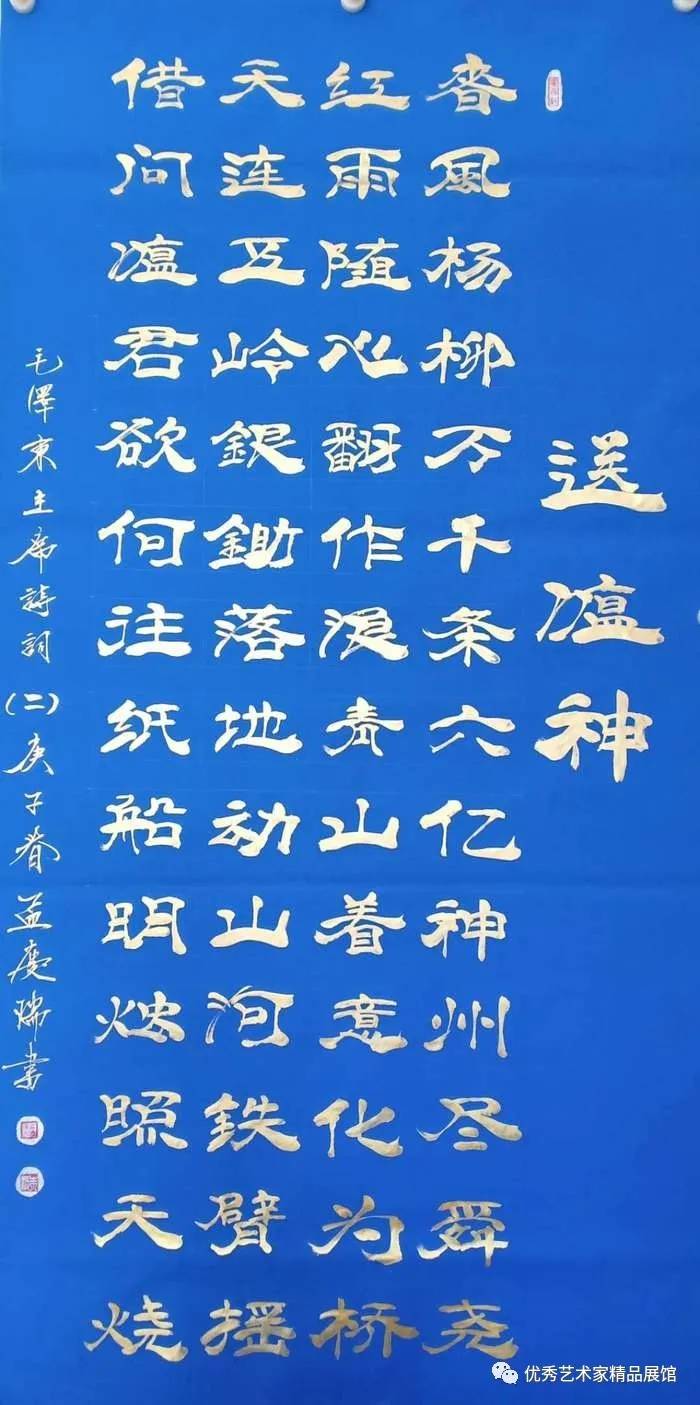 送瘟神
春風杨柳万千条六亿神州尽舜尧
红雨随心翻作浪青山着意化为桥
天连五岭銀鋤落地动山河鉄臂摇
借问瘟君欲何往纸船明烛照天烧
毛澤東主席詩詞(二)庚子春慶瑞書
优秀艺术家精品展馆